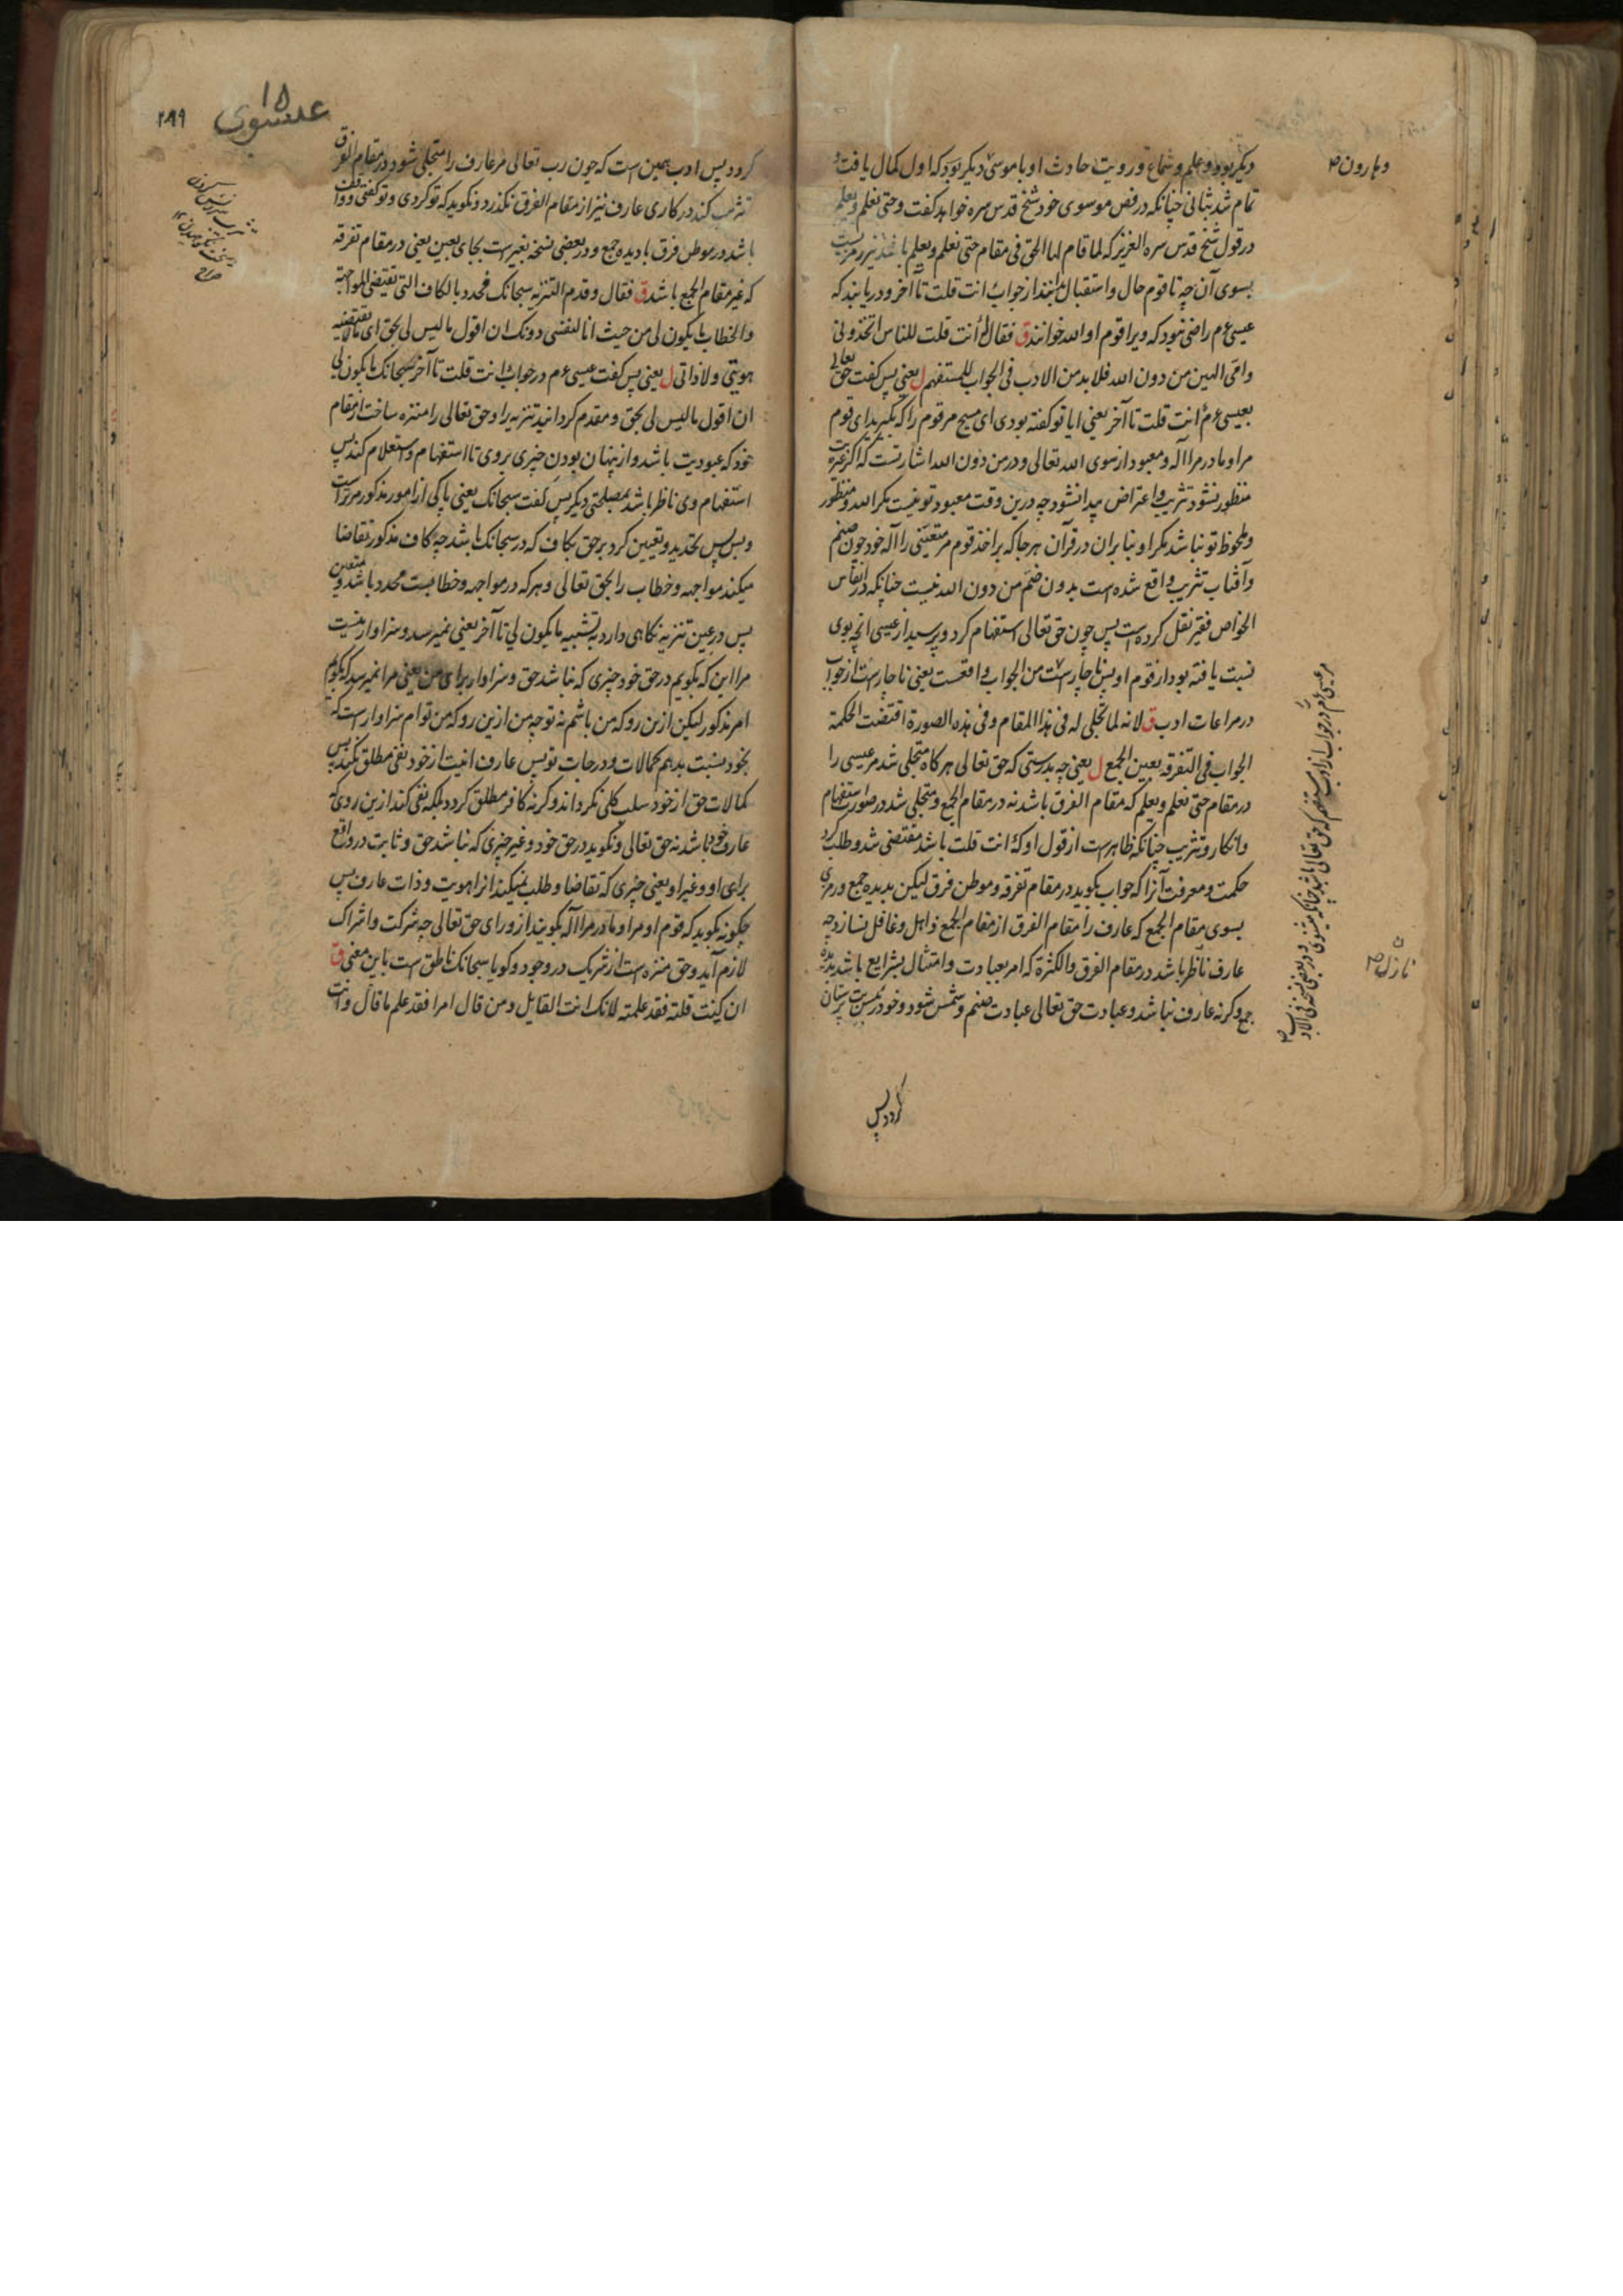 دیکر بود و علم و سماع و رویت حادث او با موسی دیکر بود که اول کمال یافت و
تمام شد ثبانی چنانکه در فص موسوی خود شیخ قدس سره خواهد کفت و حتی نعلم و یعلم
در قول شیخ قدس سره العزیز که لما قام لها الحق فی مقام حتی نعلم و یعلم
بسوی آن چه تا قوم حال و استقبال از جواب انت قلت تا آخر و دریابند که
عیسی عم راضی نبود که ویرا قوم او الله خوانند ق فقال له أنت قلت للناس اتخذونی
وامی الهین من دون الله فلا بد من الادب فی الجواب للمستفهم ل یعنی پس کفت حق تعالی
بعیسی عم أنت قلت تا آخر یعنی ایا تو کفته بودی ای مسیح مر قوم را که بکیرید ای قوم
مرا و مادر مرا آله و معبود از سوی الله تعالی و در من دون الله اشارتست که اکر غیریت
منظور نشود تثریب و اعتراض پیدا نشود چه درین وقت معبود تو نیست مکر الله و منظور
و ملحوظ تو نباشد مکر او و بنا بران در قرآن هر جا که بر اخذ قوم مر متعینی را آله خود چون صنم
و آفتاب تثریب واقع شده است بدون ضم من دون الله نیست چنانکه در انفاس
الخواص فقیر نقل کرده است پس چون حق تعالی استفهام کرد و پرسید از عیسی انچه بوی
نسبت یافته بود از قوم او پس ناچارست من الجواب واقعست یعنی ناچارست از جواب
در مراعات ادب ق لانه لما تجلی له فی هذا المقام و فی هذه الصورة اقتضت الحکمة
الجواب فی التفرقه بعین الجمع ل یعنی چه بدرستی که حق تعالی هر کاه متجلی شد مر عیسی را
در مقام حتی نعلم و یعلم که مقام الفرق باشد نه در مقام الجمع و متجلی شد در صورت استفهام
و انکار و تثریب چنانکه ظاهرست از قول او که أنت قلت باشد مقتضی شد و طلب کرد
حکمت و معرفت آنرا که جواب بکوید در مقام تفرقه و موطن فرق لیکن بدیده جمع و رمزی
بسوی مقام الجمع که عارف را مقام الفرق از مقام الجمع ذاهل و غافل نسازد چه
عارف ناظر باشد در مقام الفرق و الکثرة که امر بعبادت و امتثال بشرایع باشد بدیده
جمع و کرنه عارف نباشد و عبادت حق تعالی عبادت صنم و شمس شود و خود در بت پرستان
کردد پس
و هارون ۲
نازل
مر عیسی عم را در جواب از ادب مستفهم که حق تعالی باشد چنانکه میشنوی و در بعضی نسخه فی الادب
عیسوی ۱۵
۲۸۹
کردد پس ادب همین است که چون رب تعالی مر عارف را متجلی شود در مقام الفرق
تثریب کند در کاری عارف نیز از مقام الفرق نکذرد و نکوید که تو کردی و تو کفتی و واقف
باشد در موطن فرق با دیده جمع و در بعضی نسخه بغیرست بجای بعین یعنی در مقام تفرقه
که غیر مقام الجمع باشد ق فقال و قدم التنزیه سبحانک فحدد بالکاف التی تقتضی المواجهة
و الخطاب ما یکون لی من حیث انا لنفسی دونک ان اقول ما لیس لی بحق ای ما تقتضیه
هویتی و لا ذاتی ل یعنی پس کفت عیسی عم در جواب أنت قلت تا آخر سبحانک ما یکون لی
ان اقول ما لیس لی بحق و مقدم کردانید تنزیه را و حق تعالی را منزه ساخت از مقام
خود که عبودیت باشد و از پنهان بودن چیزی بروی تا استفهام و استعلام کند پس
استفهام وی ناظر باشد بمصلحتی دیکر پس کفت سبحانک یعنی پاکی از امور مذکور مر تراست
و پس تحدید و تعیین کرد بر حق بکاف که در سبحانک باشد چه کاف مذکور تقاضا
میکند مواجهه و خطاب را بحق تعالی و هر که در مواجهه و خطابست محدد باشد و متعین
پس در عین تنزیه نکاهی دارد به تشبیه ما یکون لی تا آخر یعنی نمیرسد و سزاوار نیست
مرا این که بکویم در حق خود چیزی که نباشد حق و سزاوار برای من یعنی مرا نمیرسد که بکویم
امر مذکور لیکن ازین رو که من باشم نه تو چه من ازین رو که من توام سزاوار است که
بخود نسبت بدهم کمالات و درجات تو پس عارف انیت از خود نفی مطلق نکند پس
کمالات حق از خود سلب کلی نکرداند و کرنه کافر مطلق کردد بلکه نفی کند ازین روی که
عارف خود باشد نه حق تعالی و نکوید در حق خود و غیر چیزی که نباشد حق و ثابت در واقع
برای او و غیر او یعنی چیزی که تقاضا و طلب نمیکند انرا هویت و ذات عارف پس
چکونه بکوید که قوم او مرا و مادر مرا آله بکویند از ورای حق تعالی چه شرکت و اشراک
لازم آید و حق منزه است از شریک در وجود و کویا سبحانک ناطق است باین معنی ق
ان کنت قلته فقد علمته لانک انت القایل و من قال امرا فقد علم ما قال و انت